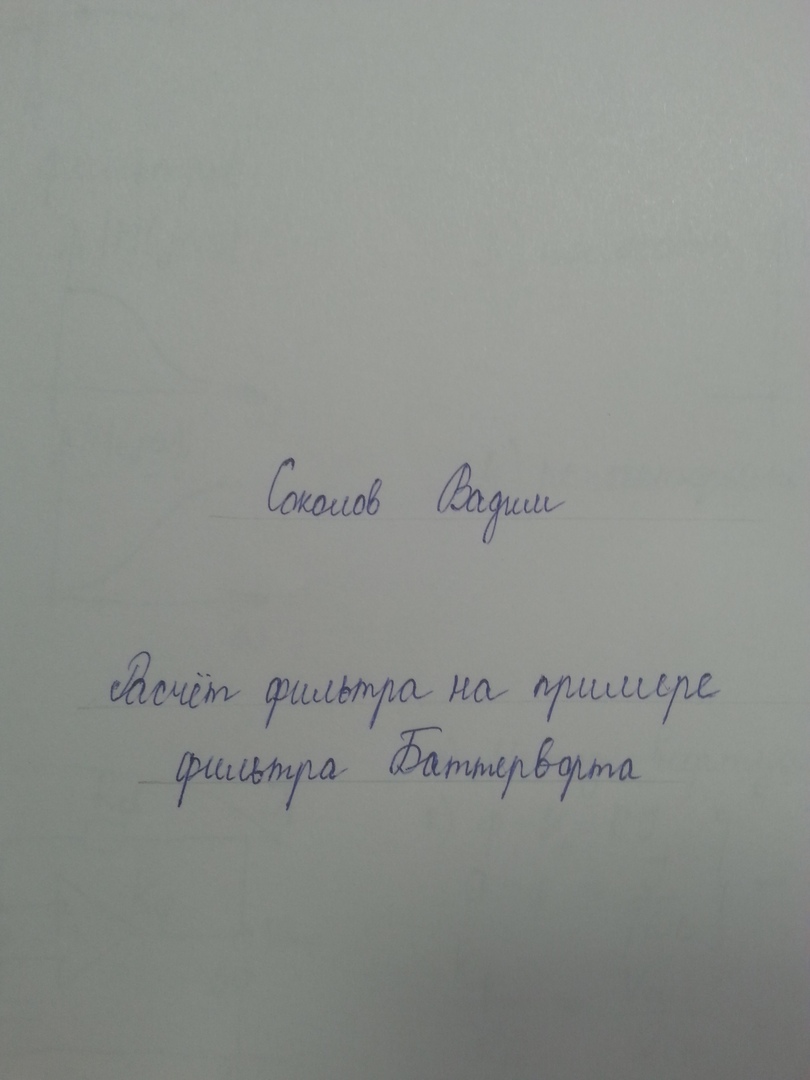 Соколов Вадим
Расчёт фильтра на примере
фильтра Баттерворта